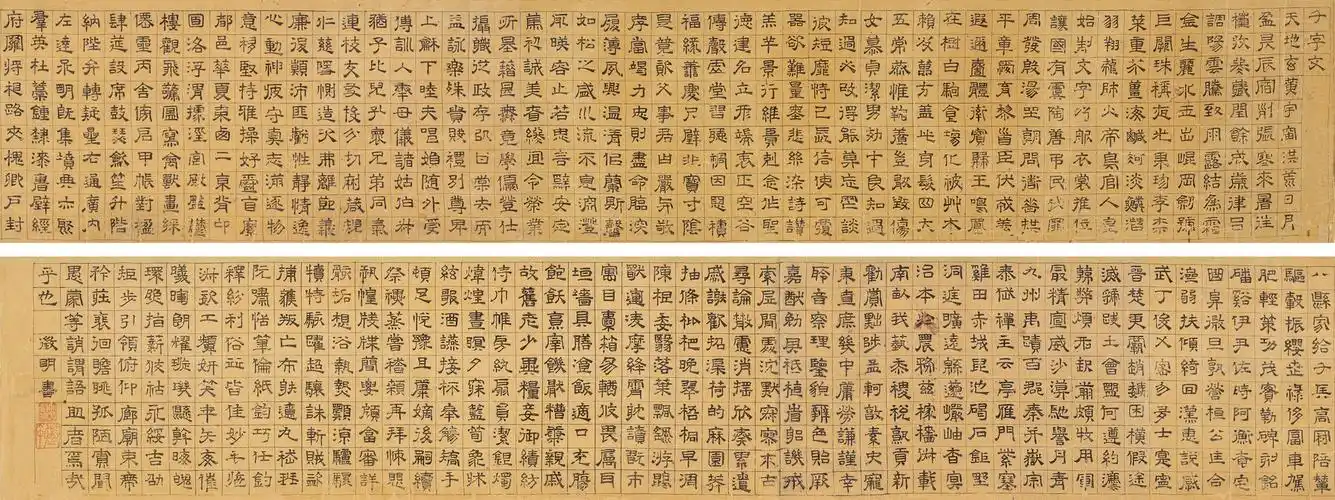 千字文
天地玄黃宇宙洪荒日月
盈昃辰宿列張寒來暑往
秋收冬藏閏餘成歲律呂
調陽雲騰致雨露結為霜
金生麗水玉出崐岡劍號
巨闕珠稱夜光果珍李柰
菜重芥薑海鹹河淡鱗潛
羽翔龍師火帝鳥官人皇
始制文字乃服衣裳推位
讓國有虞陶唐弔民伐罪
周發殷湯坐朝問道垂拱
平章愛育黎首臣伏戎羌
遐邇壹體率賓歸王鳴鳳
在樹白駒食場化被草木
賴及萬方蓋此身髮四大
五常恭惟鞠養豈敢毀傷
女慕貞潔男効才良知過
知過必改得能莫忘罔談
彼短靡恃己長信使可覆
器欲難量墨悲絲染詩讚
羔羊景行維賢剋念作聖
德建名立形端表正空谷
傳聲虛堂習聽禍因惡積
福緣善慶尺璧非寶寸陰
是競資父事君曰嚴與敬
孝當竭力忠則盡命臨深
履薄夙興溫凊似蘭斯馨
如松之盛川流不息淵澄
取暎容止若思言辭安定
篤初誠美慎終宜令榮業
所基藉甚無竟學優登仕
攝職從政存以甘棠去而
益詠樂殊貴賤禮別尊卑
上龢下睦夫唱婦隨外受
傅訓入奉母儀諸姑伯叔
猶子比兒孔懷兄弟同氣
連枝交友投分切磨箴規
仁慈隱惻造次弗離節義
廉退顛沛匪虧性靜情逸
心動神疲守真志滿逐物
意移堅持雅操好爵自縻
都邑華夏東西二京背邙
面洛浮渭據涇宮殿盤鬱
樓觀飛驚圖寫禽獸畫綵
僊靈丙舍傍啟甲帳對楹
肆筵設席鼓瑟吹笙升階
納陛弁轉疑星右通廣內
左達承明既集墳典亦聚
羣英杜藁鍾隸漆書壁經
府羅將相路夾槐卿戶封
八縣家給千兵高冠陪輦
驅轂振纓世祿侈富車駕
肥輕策功茂實勒碑刻銘
磻谿伊尹佐時阿衡奄宅
曲阜微旦孰營桓公匡合
濟弱扶傾綺回漢惠說感
武丁俊乂密勿多士寔寧
晉楚更霸趙魏困橫假途
滅虢踐土會盟何遵約法
韓弊煩刑起翦頗牧用軍
最精宣威沙漠馳譽丹青
九州禹蹟百郡秦并嶽宗
泰岱禪主云亭雁門紫塞
雞田赤城昆池碣石鉅野
洞庭曠遠緜邈巖岫杳冥
治本於農務茲稼穡俶載
南畝我蓺黍稷稅熟貢新
勸賞黜陟孟軻敦素史魚
秉直庶幾中庸勞謙謹敕
聆音察理鑒貌辨色貽厥
嘉猷勉其祗植省躬譏戒
索居閒處沉默寂寥求古
尋論散慮消搖欣奏累遣
慼謝歡招渠荷的歷園莽
抽條枇杷晚翠梧桐早凋
陳根委翳落葉飄颻游鵾
獸運凌摩絳霄耽讀翫市
寓目囊箱易輶攸畏屬耳
垣牆具膳飡飯適口充腸
飽飫烹宰饑猒糟糠親戚
故舊老少異糧妾御績紡
侍巾帷房紈扇員潔銀燭
煒煌晝瞑夕寐藍筍象牀
絃歌酒讌接杯舉觴矯手
頓足悅豫且康嫡後嗣續
祭禩蒸嘗稽顙再拜悚懼
恐惶牋牒簡要顧答審詳
骸垢想浴執熱願涼驢騾
犢特駭躍超驤誅斬賊盜
捕獲叛亡布射遼丸嵇琴
阮嘯恬筆倫紙鈞巧任釣
釋紛利俗並皆佳妙毛施
淑姿工顰妍笑年矢每催
曦暉朗耀璇璣懸斡晦魄
環照指薪修祜永綏吉劭
矩步引領俯仰廊廟束帶
矜莊裵徊瞻眺孤陋寡聞
愚蒙等誚謂語助者焉哉
乎也 徵明書